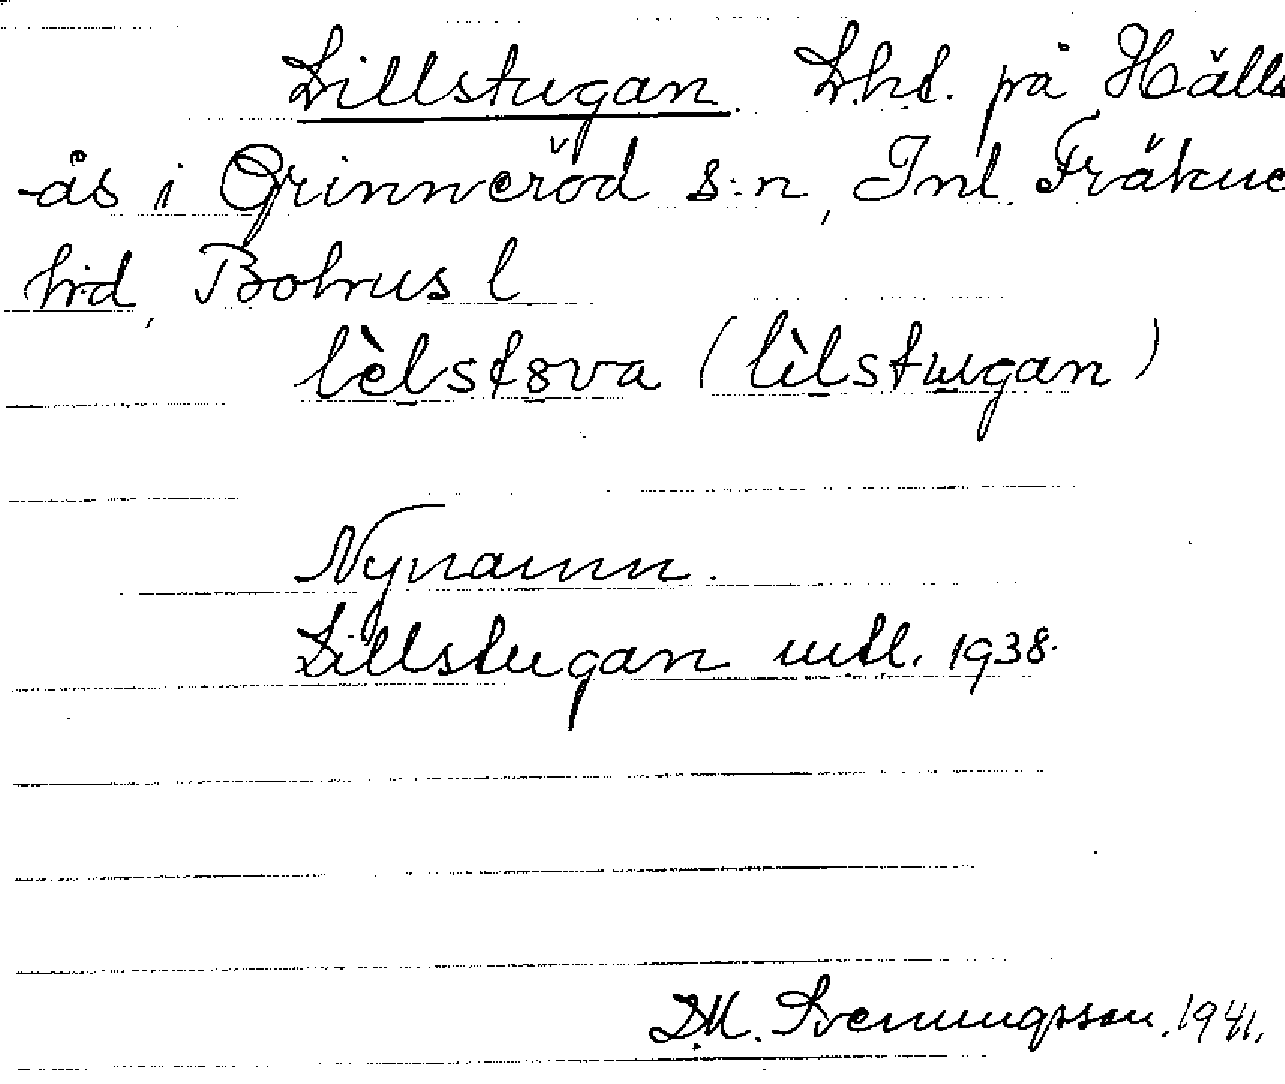 Lillstugan. Lht. på Hälls
-ås i Grinneröd s:n, Inl. Fräkne
hrd, Bohus l
lèlstova (lìlstugan)
Nynamn.
Lillstugan mtl. 1938.
D.M. Svenungsson. 1941.